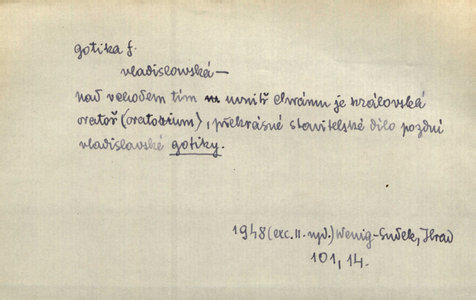 gotika f.
vladislavská —
nad vchodem tím uvnitř chrámu je královská
oratoř (oratorium), překrásné stavitelské dílo pozdní
vladislavské gotiky.
1948 (exc. II. vyd.) Wenig-Sudek, Hrad
101, 14.